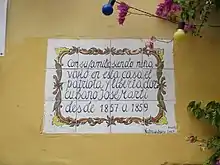 Con su familia siendo niño
vivió en esta casa el
patriota y libertador
cubano José Martí
desde 1857 a 1859